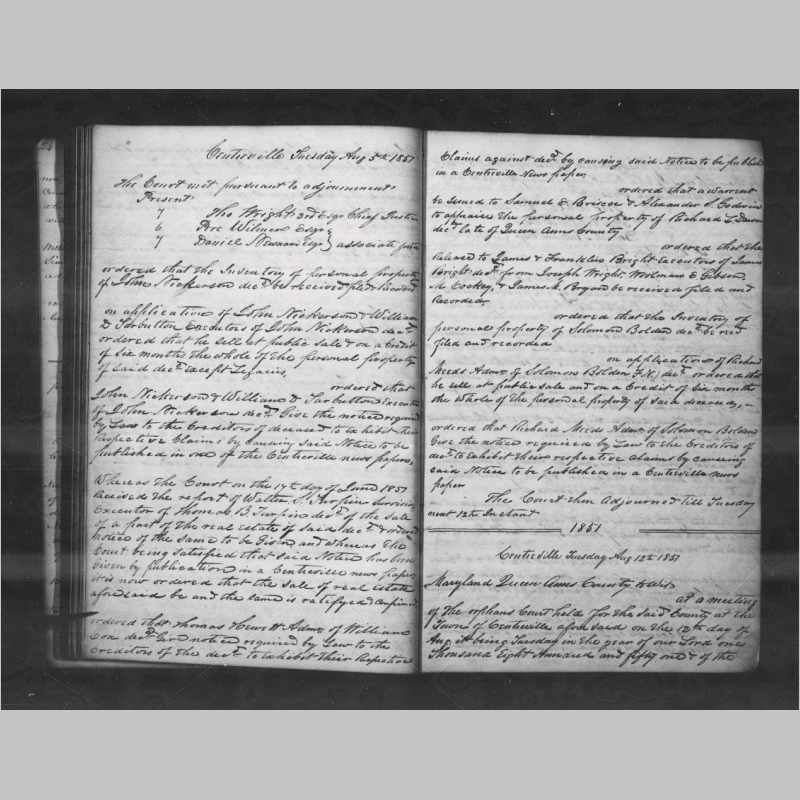 Centreville Tuesday Aug 5th 1851
The Court met pursuant to adjournment
Present
7 Tho Wright 3rd Esqr Chief Justice
6 Pere Wilmer Esqr
7 Daniel Newnam Esqr } associate
ordered that the Inventory of personal property
of John Nickerson decd be received filed & recorded
on application of John Nickerson & William
D Tarbutton Executors of John Nickerson decd
ordered that he sell at public sale & on a Credit
of six months the whole of the personal property
of said decd except Legacies
ordered that
John Nickerson & William D Tarbutton Executors
of John Nickerson decd Give the notice required
by Law to the Creditors of deceased to Exhibit their
respective Claims by Causing said Notice to be
published in one of the Centreville news papers,
Whereas the Court on the 17th day of June 1851
received the report of Walter J. Turpin surviving
Executor of Thomas B. Turpin decd of the sale
of a part of the real estate of said decd & ordered
notice of the same to be Given and whereas the
Court being satisfied that said Notice has been
Given by publication in a Centreville news paper
it is now ordered that the sale of real estate
afore said be and the same is ratifyed & confirmed
ordered that Thomas Admr of William
Cox decd Give notice required by Law to the
Creditors of the decd to exhibit their Respective
Claims against decd by causing said Notice to be publish
in a Centreville News paper,
ordered that a warrant
be issued to Samuel E Briscoe & Alexander S. Godwin
to appraise the personal property of Richard L
decd late of Queen Anns County
ordered that the
Release to James & Franklin Bright Executors of James
Bright decd from Joseph Wright, Woolman E Gibson
M Cockey, & James M. Bryan be received filed and
Recorded
ordered that the Inventory of
personal property of Solomon Bolden decd be recd
filed and recorded
on application of Richard
Meeds Admr of Solomon Bolden F.N. decd ordered that
he sell at public sale and on a Credit of six months
the whole of the personal property of said deceased, —
ordered that Richard Meeds Admr of Solomon Bolden
Give the notice required by Law to the Creditors of
decd to exhibit their respective Claims by causing
said Notice to be published in a Centreville news
paper
The Court then Adjourned till Tuesday
next 12th Instant
1851
Centreville Tuesday Aug 12th 1851
Maryland Queen Anns County to wit
at a meeting
of the orphans Court held for the said County at the
Town of Centreville afore said on the 12th day of
Aug it being Tuesday in the year of our Lord one
thousand Eight Hundred and fifty one & of the